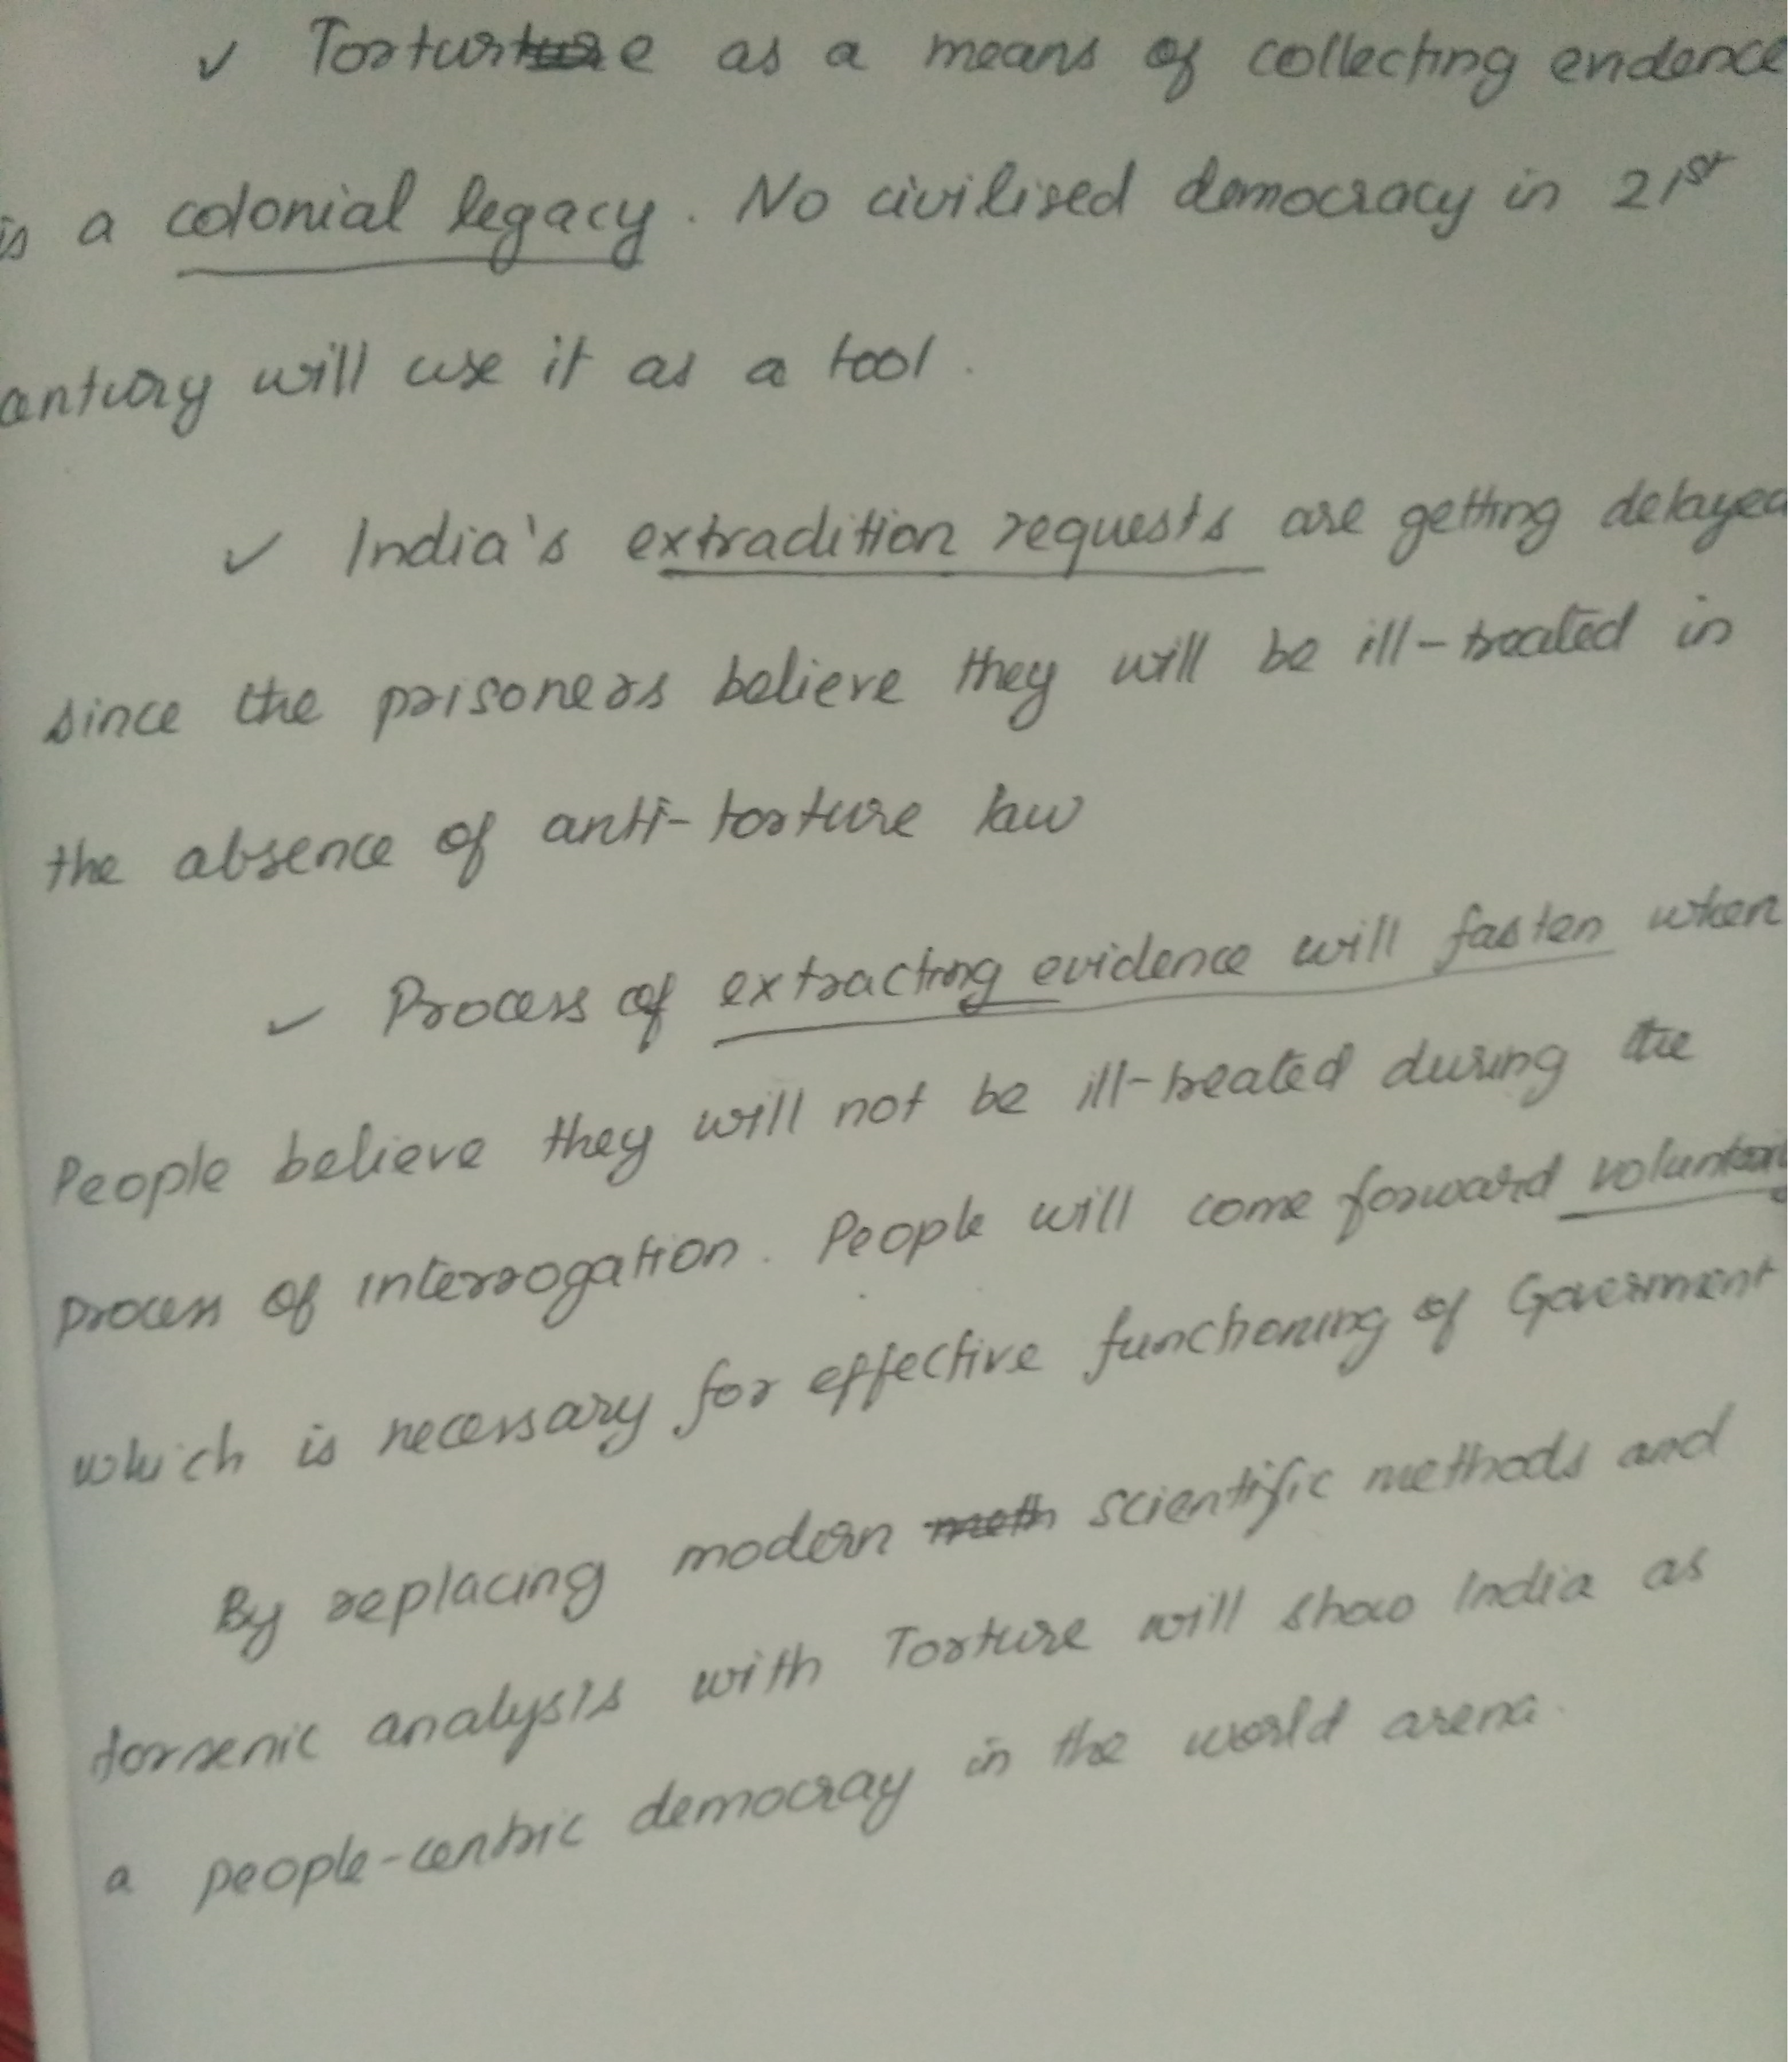 ✓ Torture as a means of collecting evidence
is a colonial legacy. No civilised democracy in 21st
century will use it as a tool.
✓ India's extradition requests are getting delayed
since the prisoners believe they will be ill-treated in
the absence of anti-torture law
✓ Process of extracting evidence will fasten when
People believe they will not be ill-treated during the
process of interrogation. People will come forward voluntari
which is necessary for effective functioning of Goverment
By replacing modern scientific methods and
forsenic analysis with Torture will show India as
a people-centric democray in the world arena.